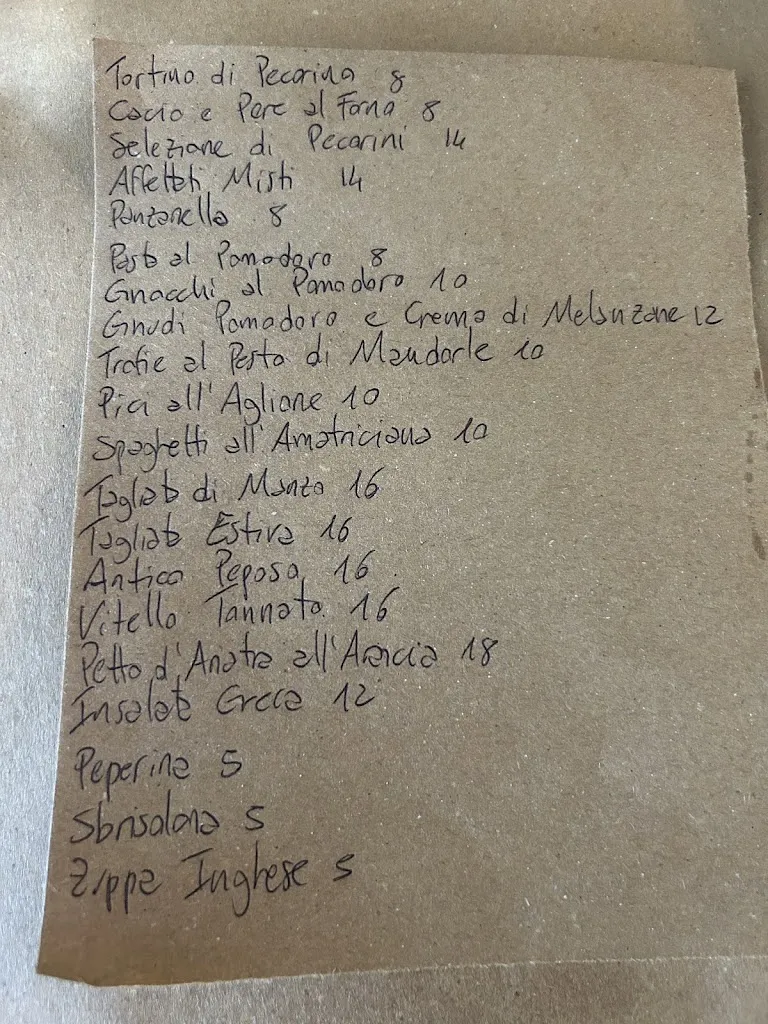 Tortino di Pecorino 8
Cacio e Pere al Forno 8
Selezione di Pecorini 14
Affettati Misti 14
Panzanella 8
Pasta al Pomodoro 8
Gnocchi al Pomodoro 10
Gnudi Pomodoro e Crema di Melanzane 12
Trofie al Pesto di Mandorle 10
Pici all'Aglione 10
Spaghetti all'Amatriciana 10
Tagliata di Manzo 16
Tagliata Estiva 16
Antico Peposo 16
Vitello Tonnato 16
Petto d'Anatra all'Arancia 18
Insalata Greca 12
Peperina 5
Sbrisolona 5
Zuppa Inglhese 5